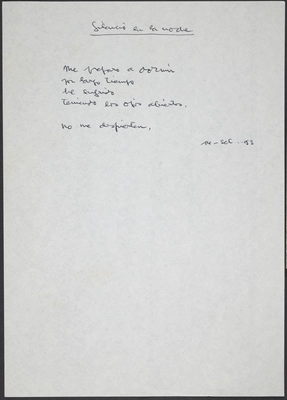 Silencio en la noche
me preparo a dormir
por largo tiempo
he sufrido
teniendo los ojos abiertos.
no me despierten.
14-Set-93